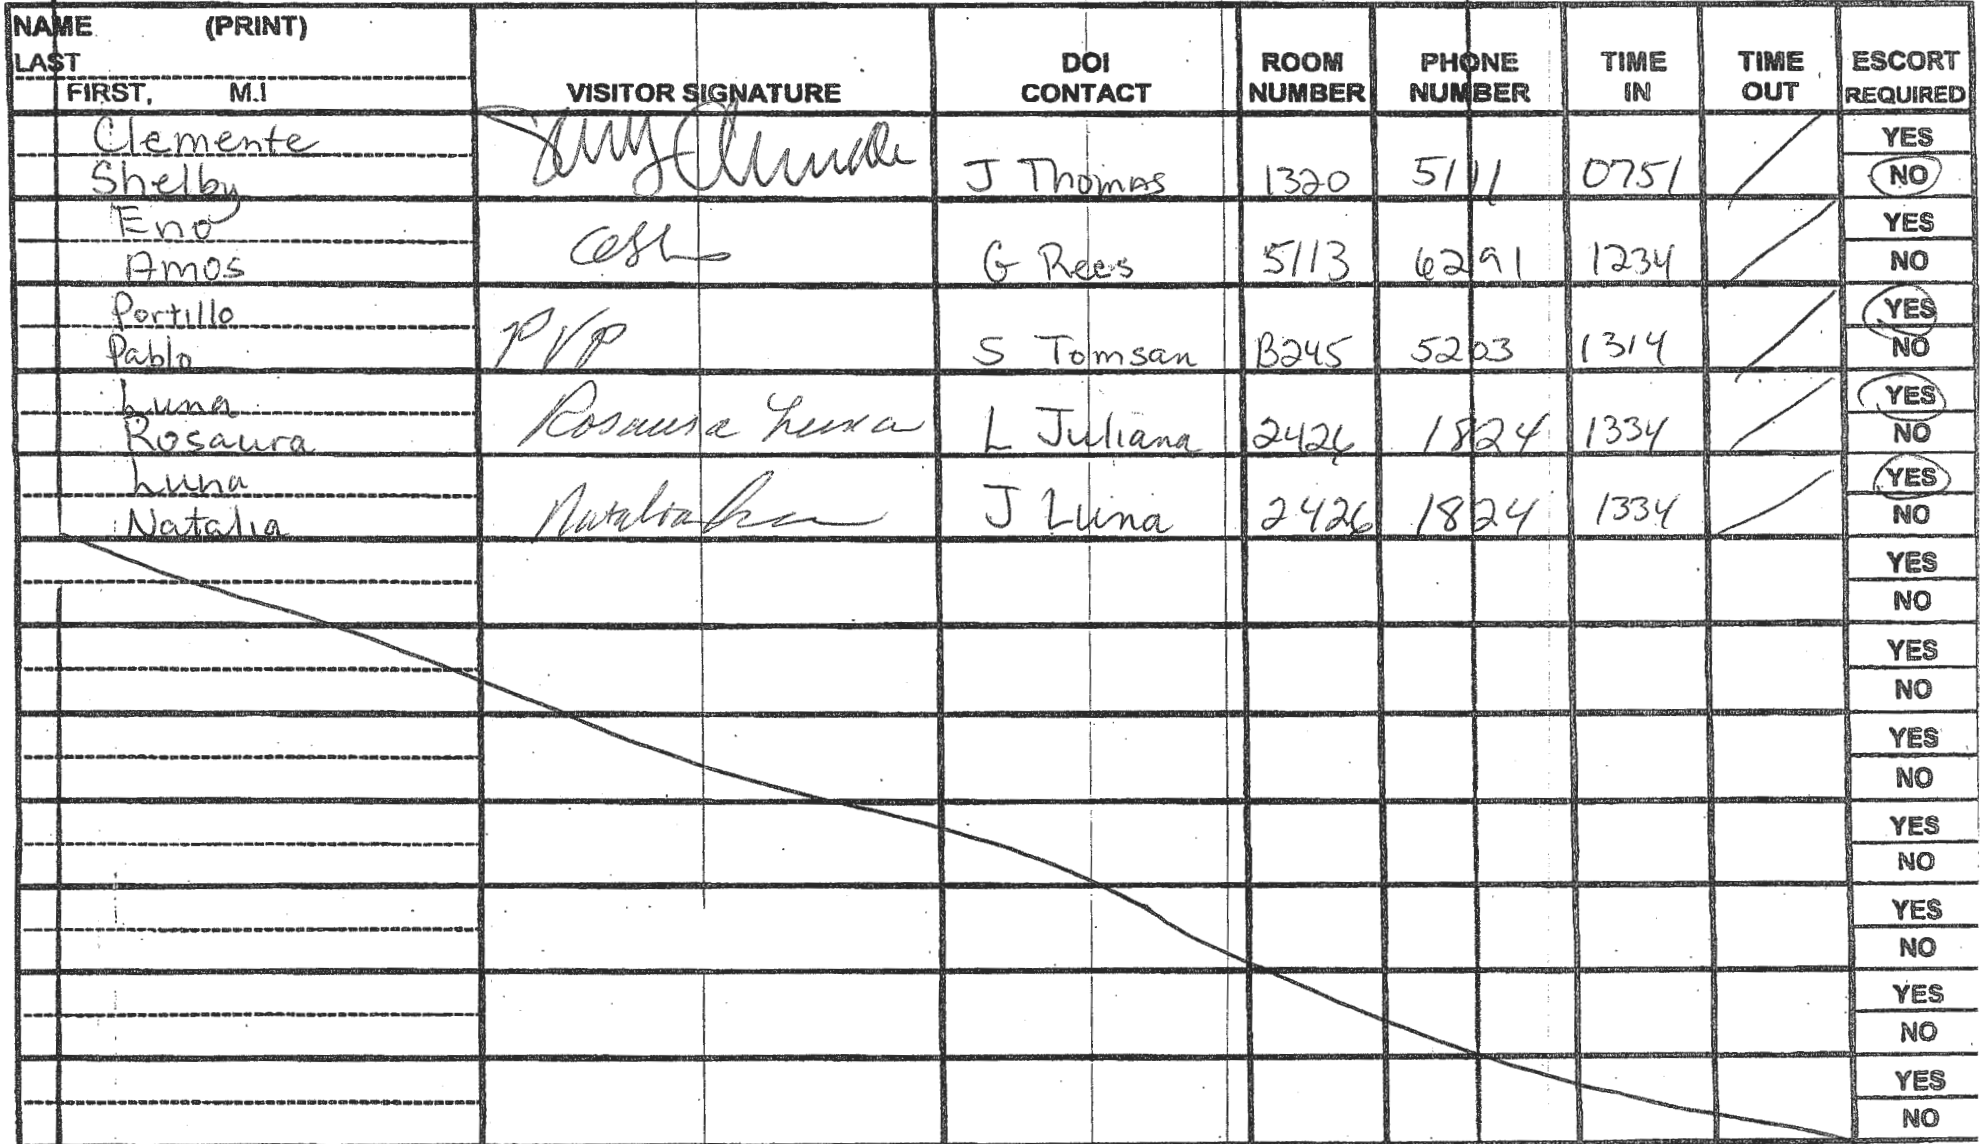 NAME (PRINT)
LAST
FIRST, M.I
VISITOR SIGNATURE
DOI
CONTACT
ROOM
NUMBER
PHONE
NUMBER
TIME
IN
TIME
OUT
ESCORT
REQUIRED
Clemente
Shelby
J Thomas 1320 5111 0751
YES
NO
Eno
Amos
G Rees 5113 6291 1234
YES
NO
Portillo
Pablo
PVP S Tomsan B245 5203 1314
YES
NO
Luna
Rosaura
Rosaura Luna L Juliana 2426 1824 1334
YES
NO
Luna
Natalia
Natalia J Luna 2426 1824 1334
YES
NO
YES
NO
YES
NO
YES
NO
YES
NO
YES
NO
YES
NO
YES
NO